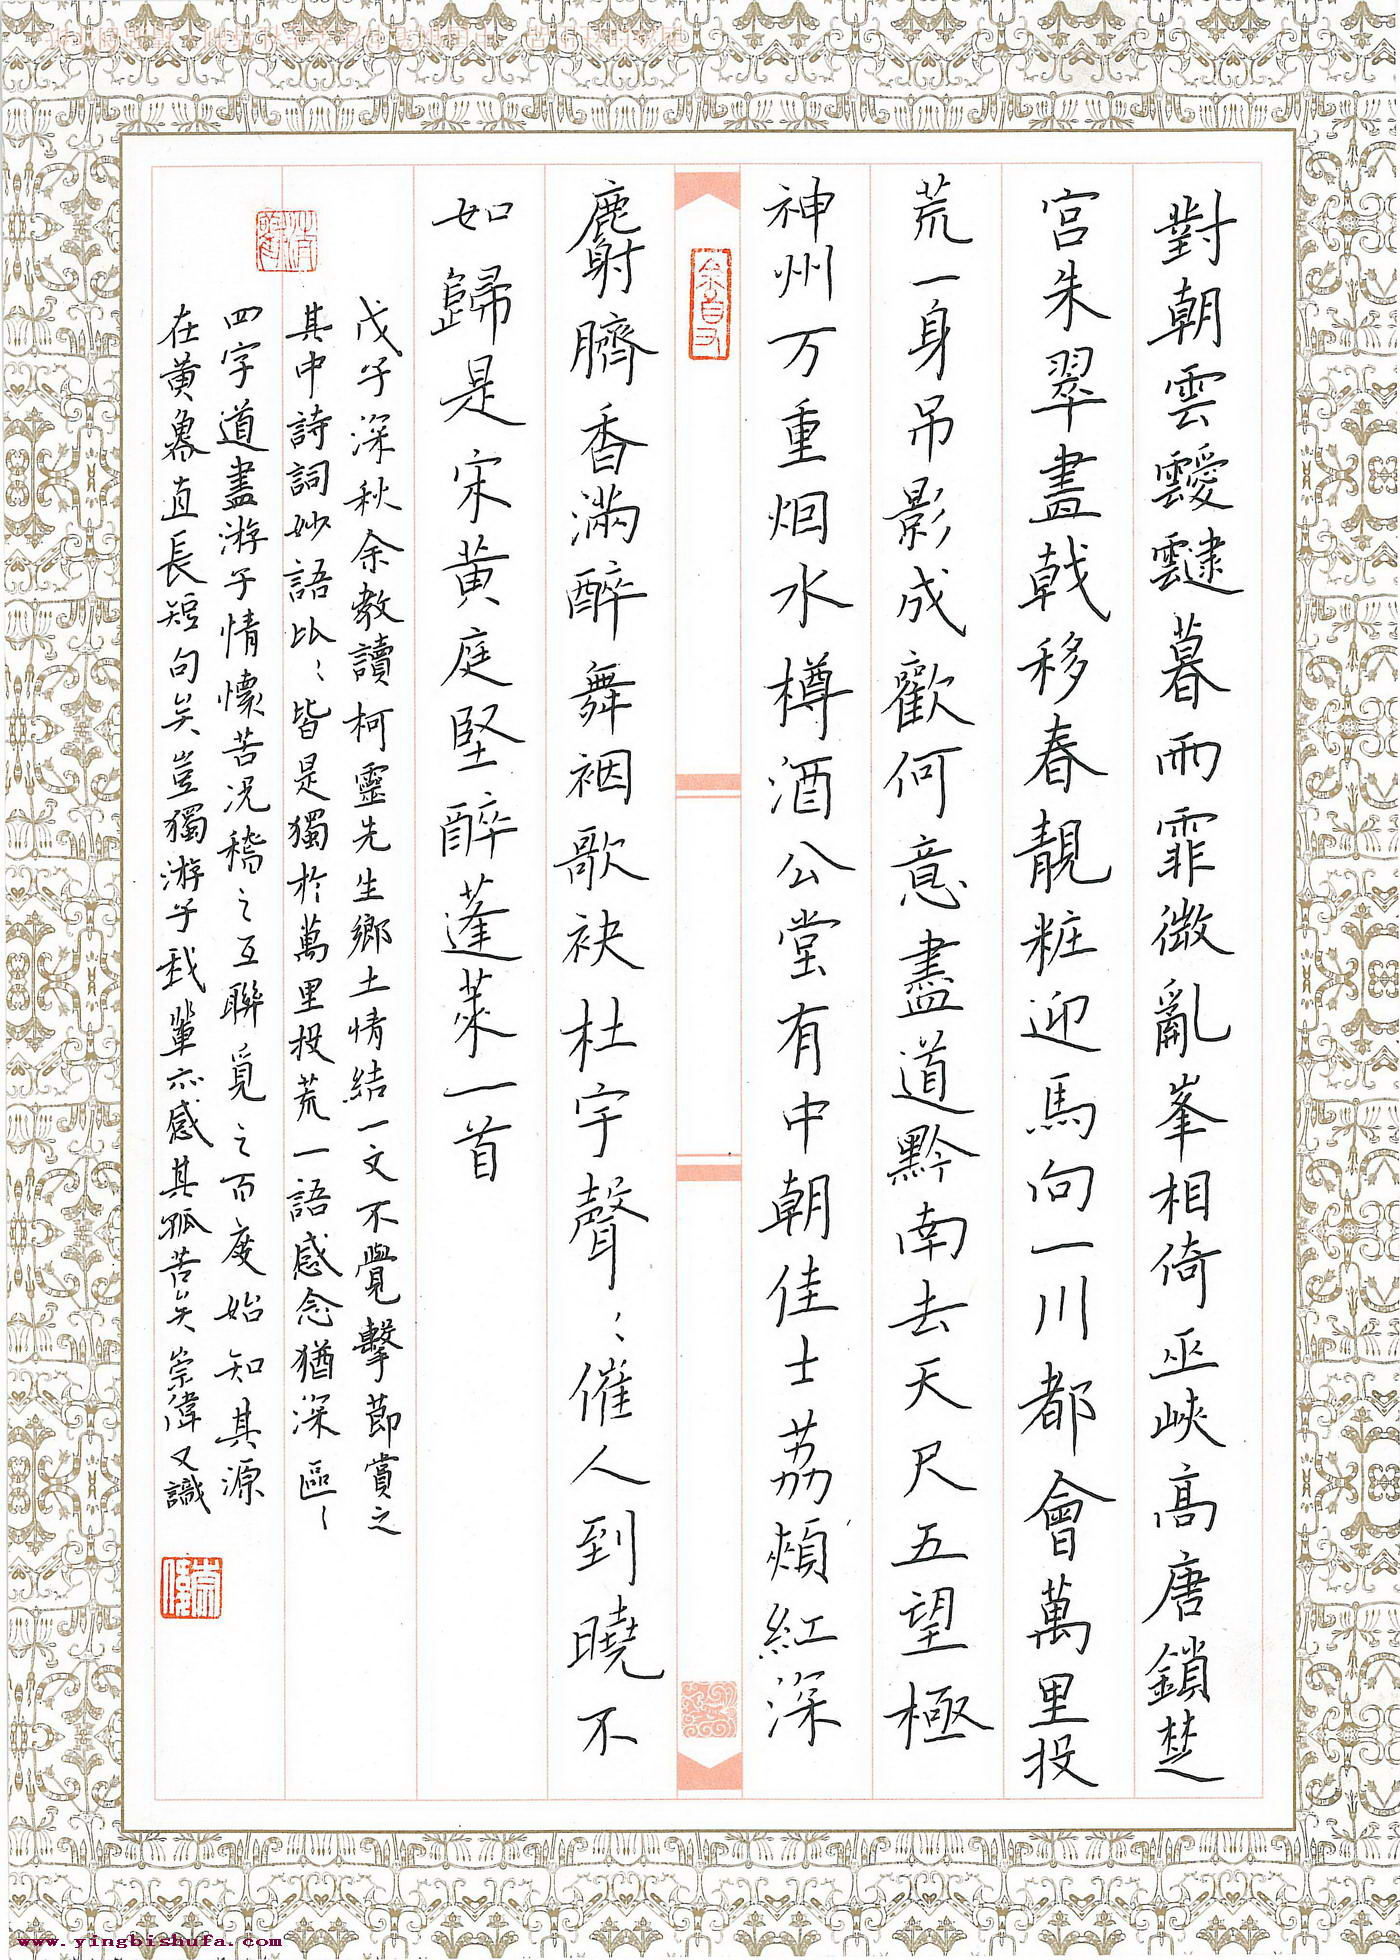 對朝雲靉靆暮雨霏微亂峯相倚巫峽高唐鎖楚
宮朱翠畫戟移春靚粧迎馬向一川都會萬里投
荒一身弔影成歡何意盡道黔南去天尺五望極
神州万重烟水樽酒公堂有中朝佳士荔頰紅深
麝臍香滿醉舞裀歌袂杜宇聲﹕催人到曉不
如歸是宋黃庭堅醉蓬萊一首
戊子深秋余教讀柯靈先生鄉土情結一文不覺擊節賞之
其中詩詞妙語比﹕皆是獨於萬里投荒一語感念猶深區〻
四字道盡游子情懷苦况稽之互聯覓之百度始知其源
在黃魯直長短句矣豈獨游子我輩亦感其孤苦矣崇偉又識
崇偉
www.yingbishufa.com